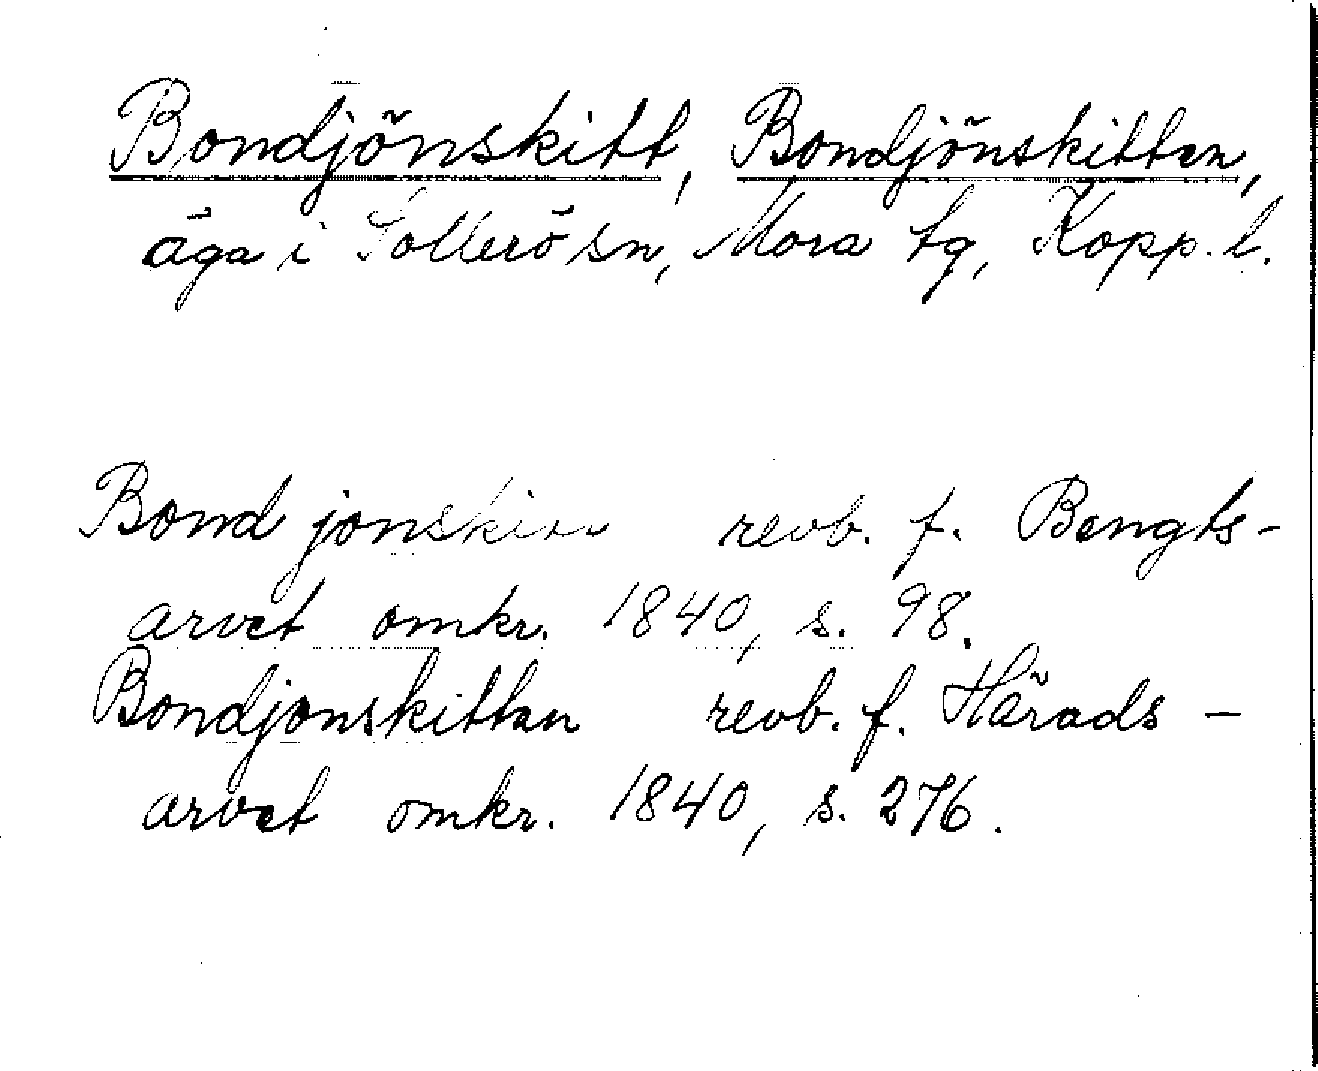 Bondjönskitt, Bondjönskitten,
äga i Sollerö sn, Mora tg, Kopp. l.
revb. f. Bengts-
arvet omkr. 1840, s. 98.
Bondjonskitten revb. f. Härads-
arvet omkr. 1840, s. 276.